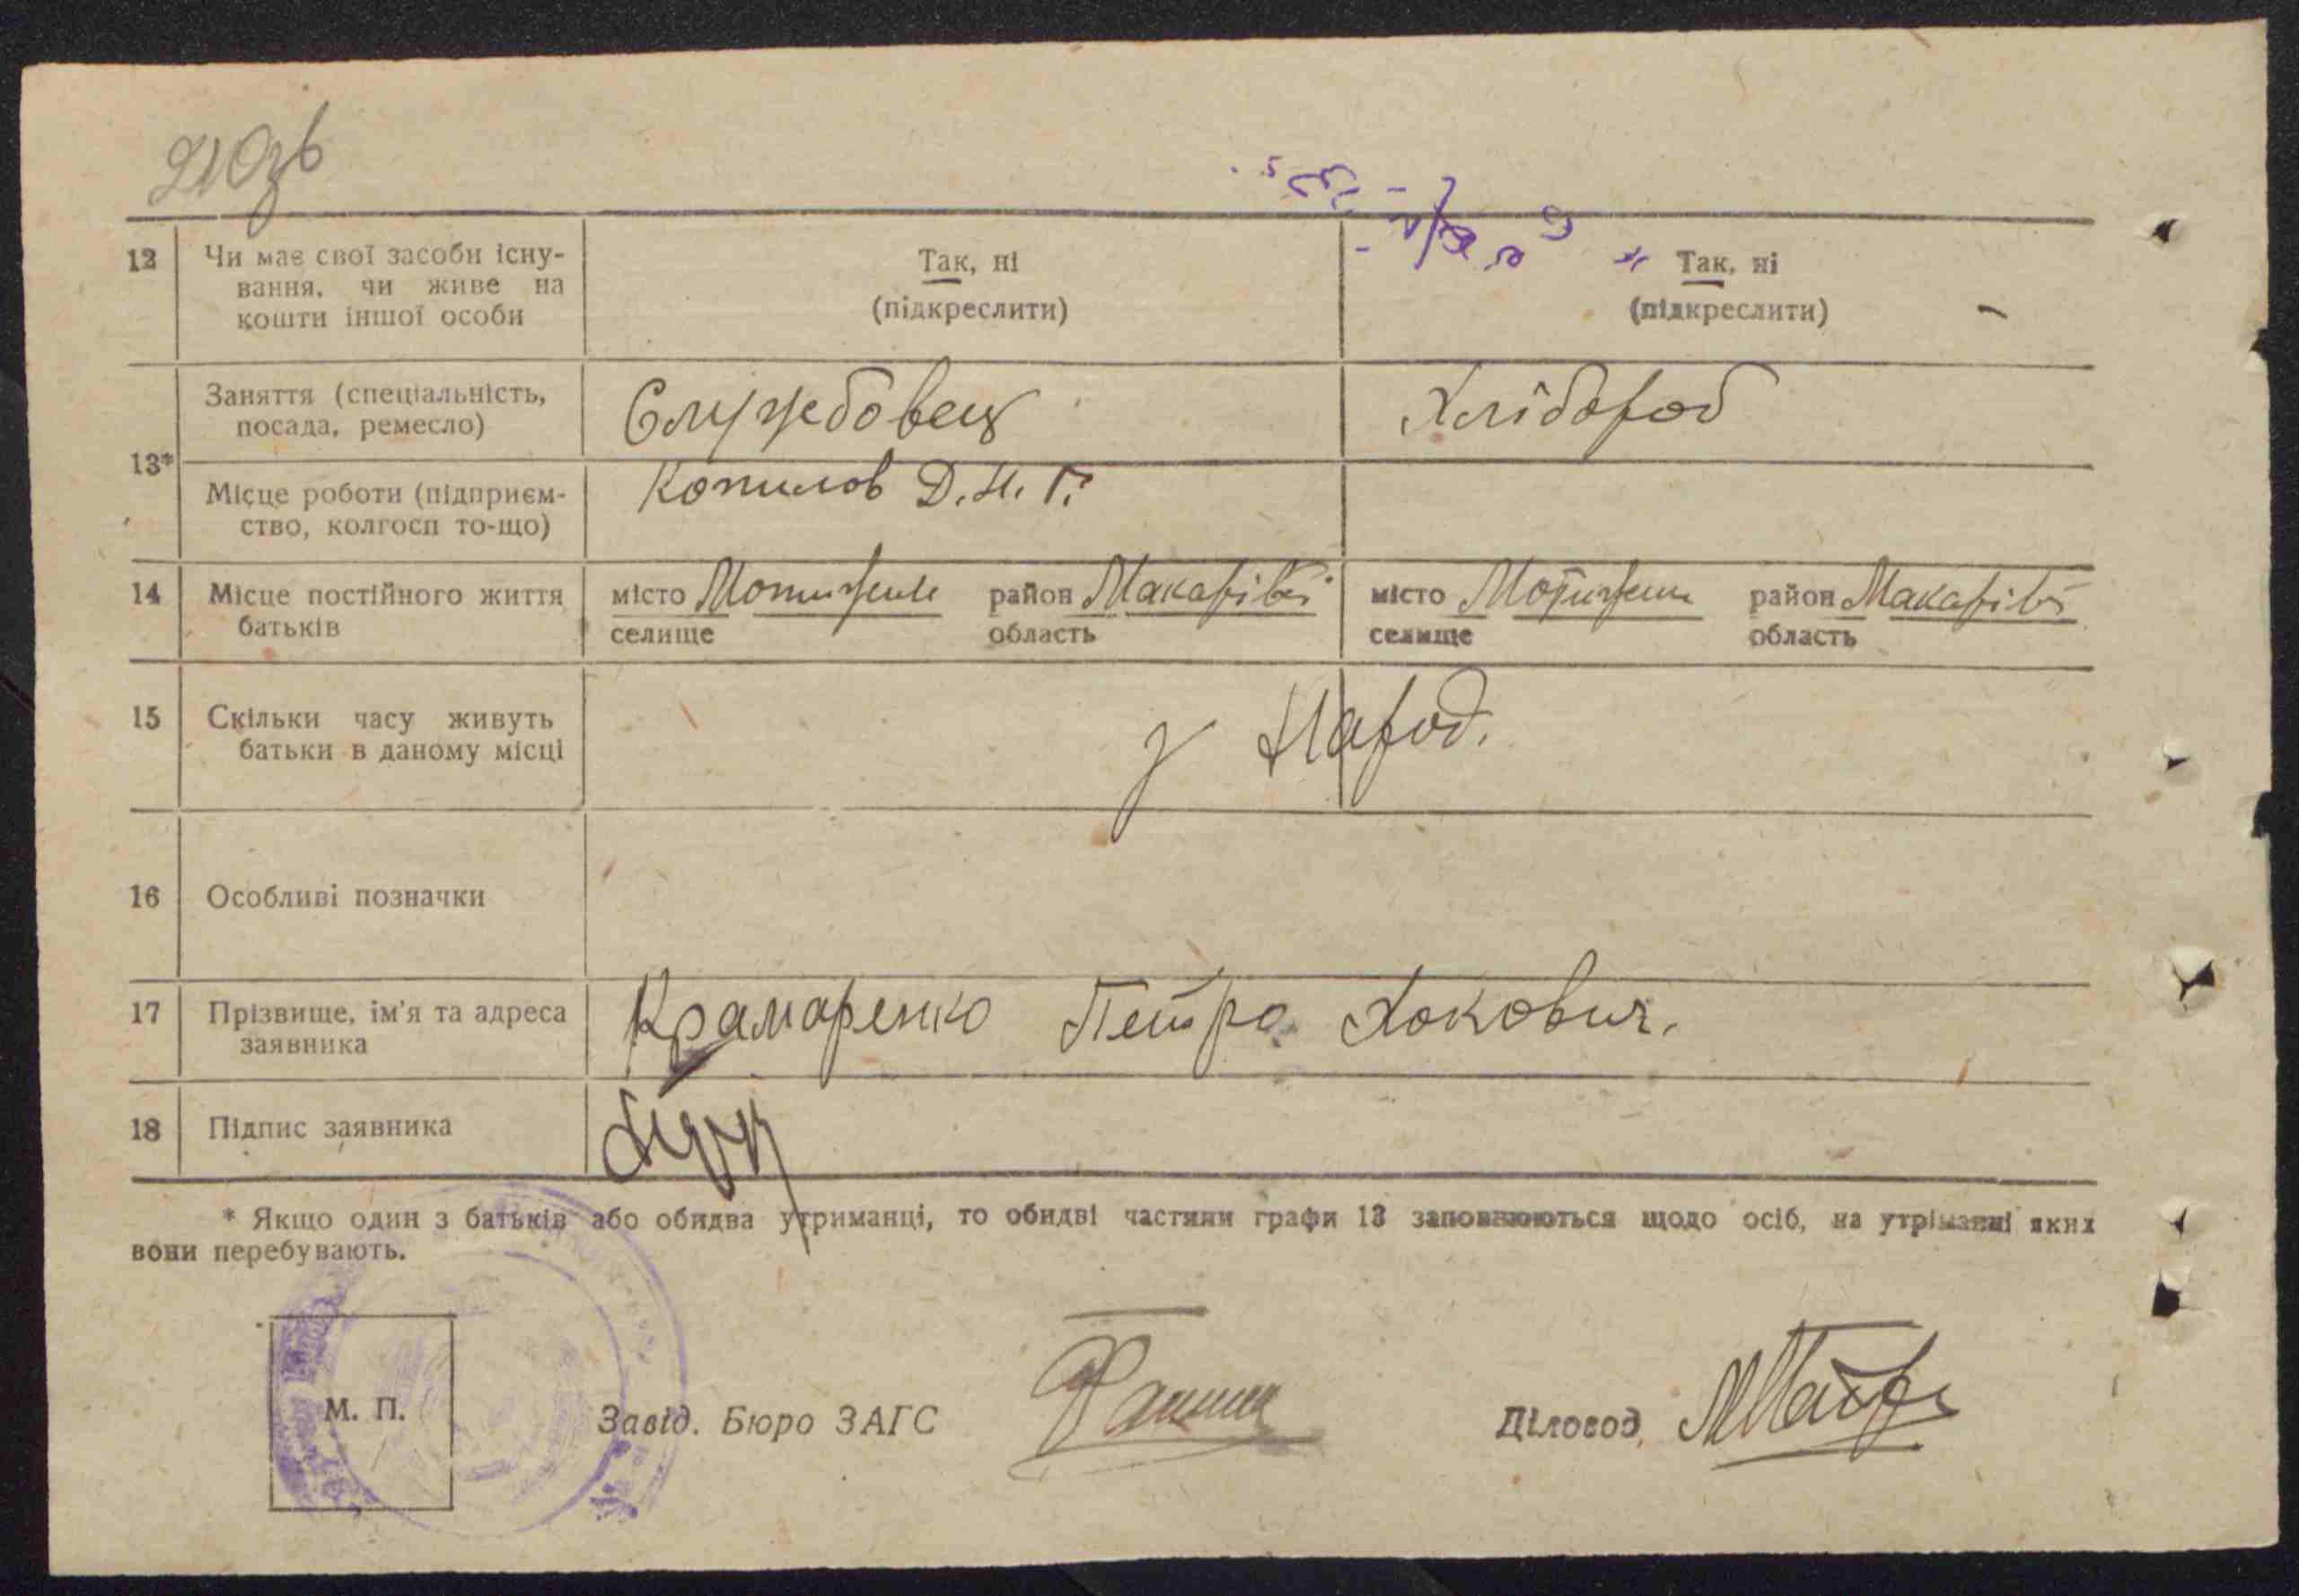 12 Чи має свої засоби існу- Так, ні Так, ні
вання, чи живе на (підкреслити) (підкреслити)
кошти іншої особи
13* Заняття (спеціальність, Службовець Хлібороб
посада, ремесло)
Місце роботи (підприєм- Копилов Д.Н.Г.
ство, колгосп то-що)
14 Місце постійного життя місто Мотижин район Макарів місто Мотижин район Макарів
батьків селище область селище область
15 Скільки часу живуть з Народ.
батьки в даному місці
16 Особливі позначки
17 Прізвище, ім'я та адреса Крамаренко Петро
заявника
18 Підпис заявника
* Якщо один з батьків або обидва утриманці, то обидві частини графи 13 заповнюються щодо осіб, на утриманні яких
вони перебувають.
М. П. Завід. Бюро ЗАГС Діловод